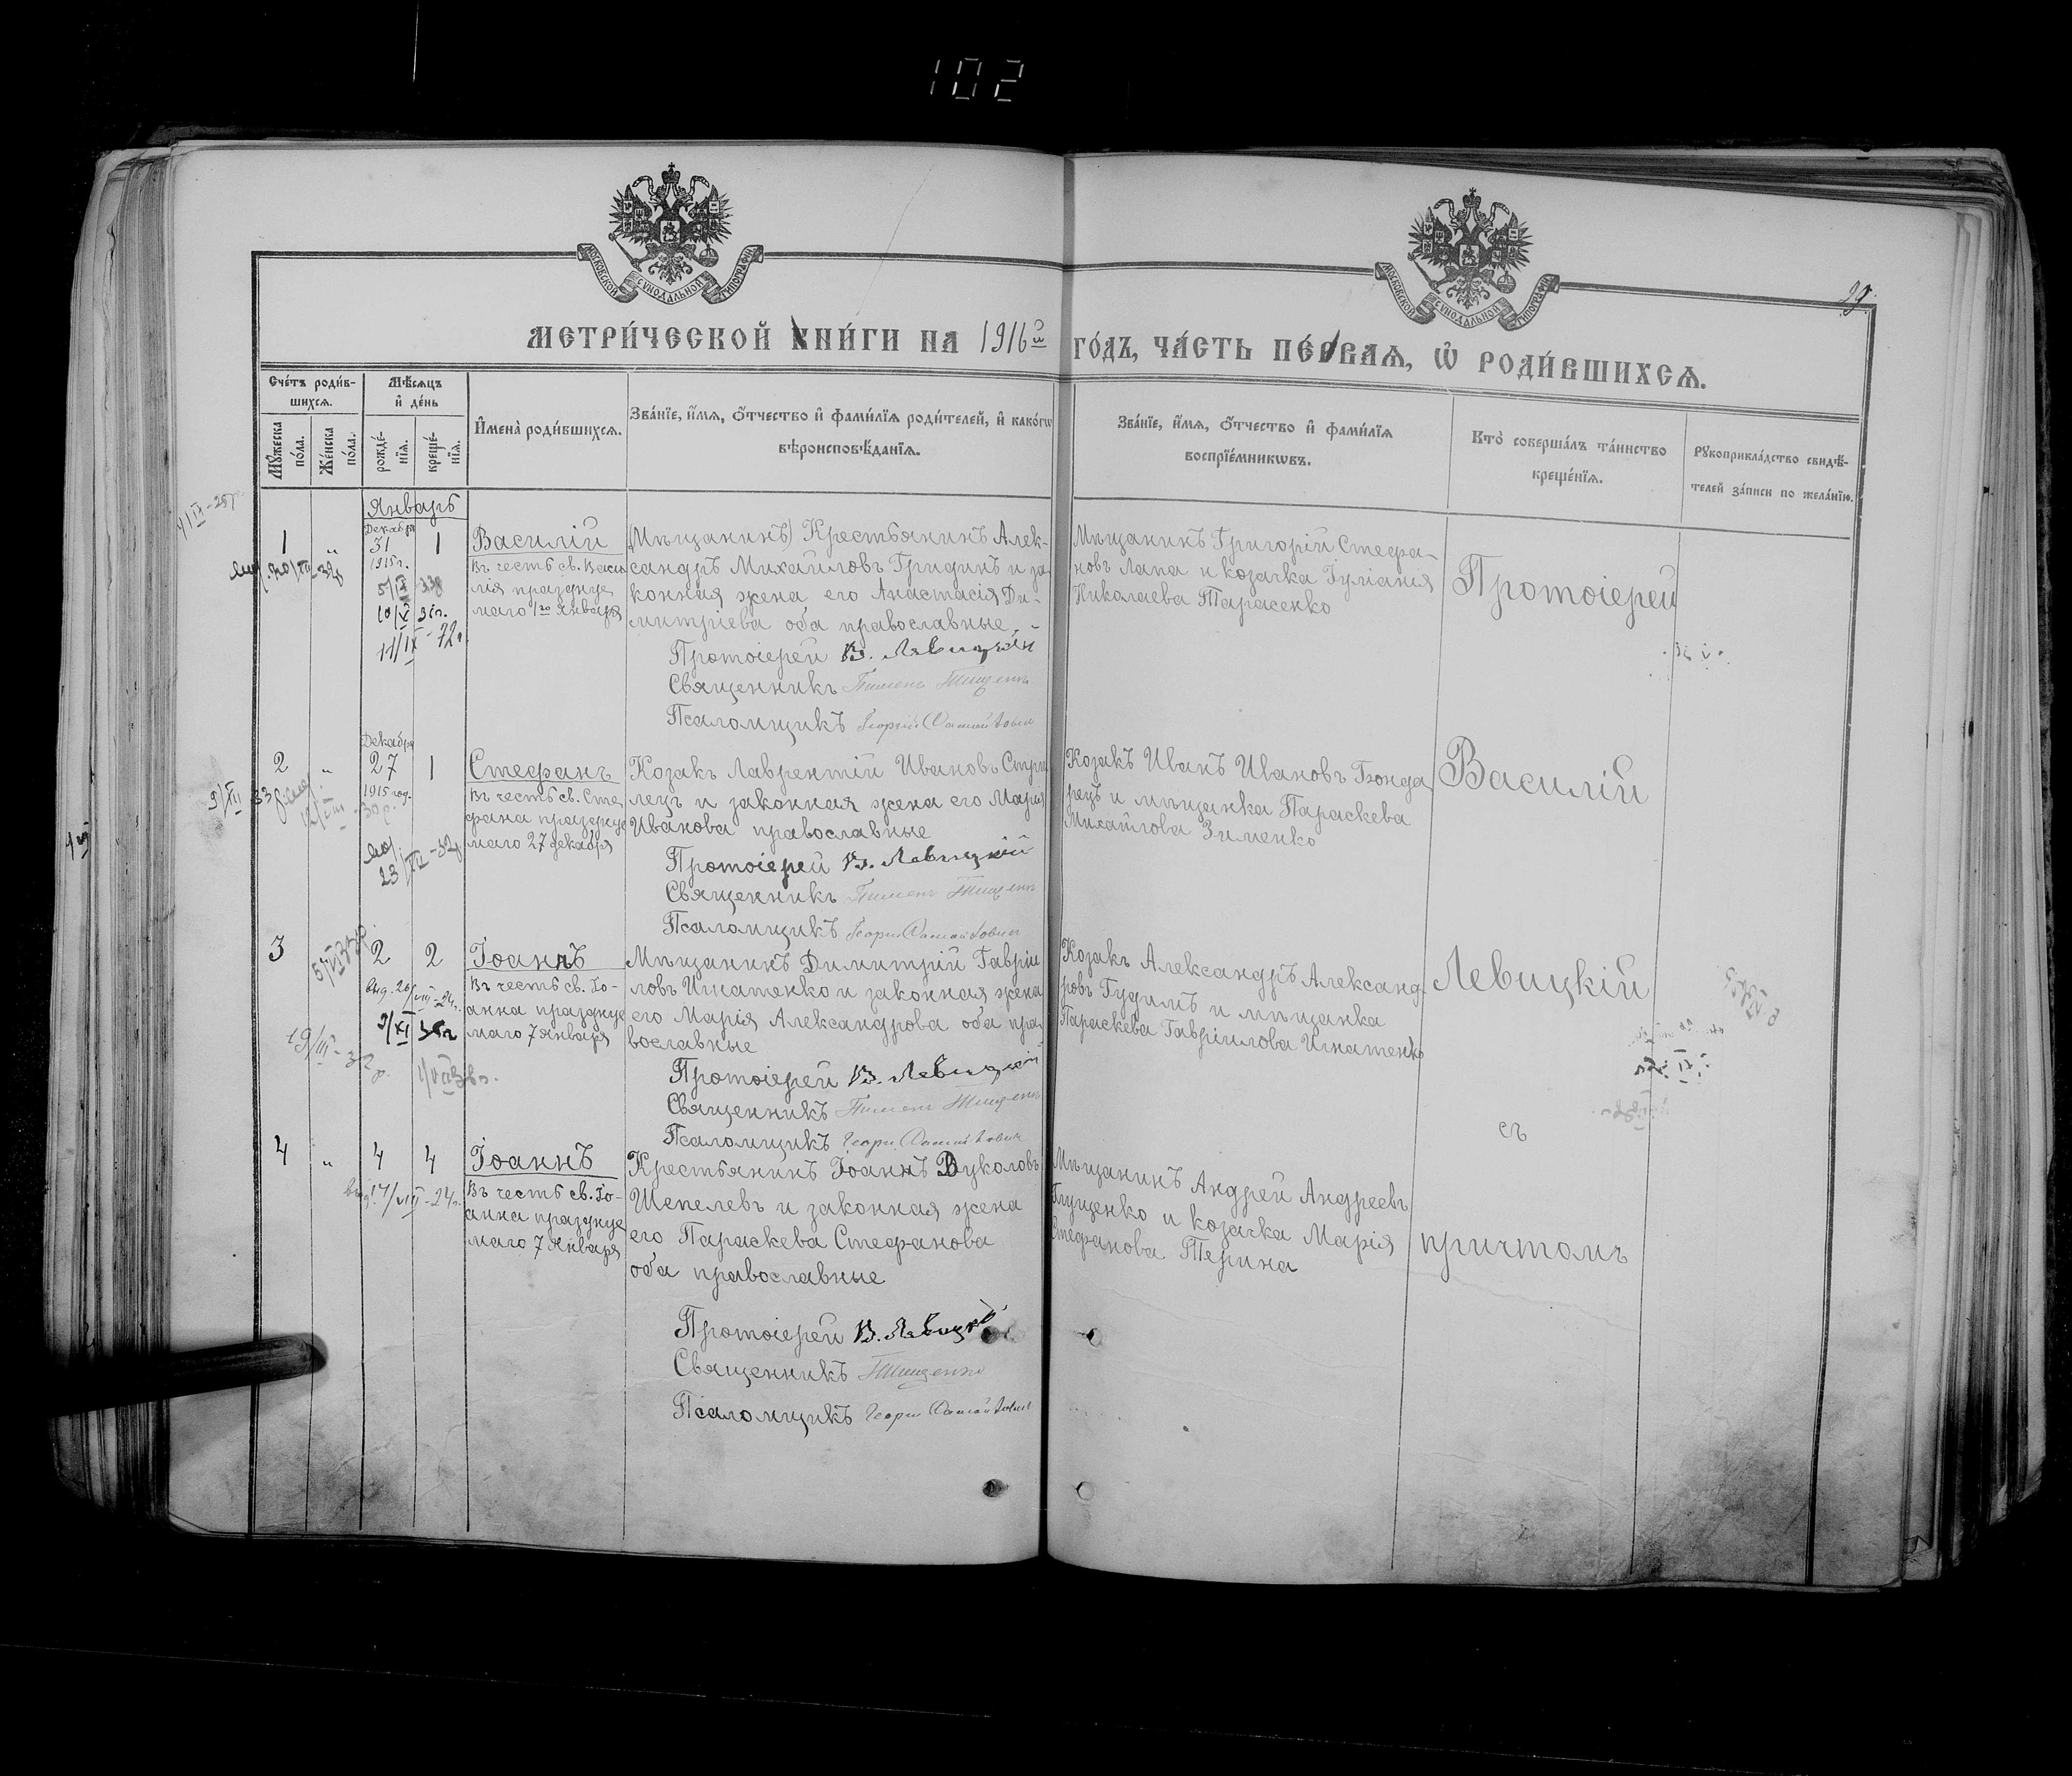 102
МОСКОВСКОЙ СУНОДАЛЬНОЙ ТИПОГРАФІИ
МОСКОВСКОЙ СУНОДАЛЬНОЙ ТИПОГРАФІИ
99.
МЕТРИ́ЧЕСКОЙ КНИ́ГИ НА 1916й ГО́ДЪ, ЧА́СТЬ ПЕ́РВАѦ, Ѿ РОДИ́ВШИХСѦ.
Сче́тъ роди́в-
шихсѧ.
Мѣ́сѧцъ
и҆ де́нь
Мꙋ́жеска
по́ла.
Же́нска
по́ла.
рожде́-
нїѧ.
креще́-
нїѧ.
И҆мена̀ роди́вшихсѧ.
Зва́нїе, и҆́мѧ, ѻ҆́тчество и҆ фами́лїѧ роди́телей, и҆ како́гѡ
вѣроисповѣ́данїѧ.
Зва́нїе, и҆́мѧ, ѻ҆́тчество и҆ фами́лїѧ
воспрїе́мникѡвъ.
Кто̀ соверша́лъ та́инство
креще́нїѧ.
Рꙋкоприкла́дство свидѣ́-
телей за́писи по жела́нїю.
Январь
1
"
Декабря
31
1915 г.
1
Василій
Въ честь св. Васи
лія празднуе
маго 1го января
(Мѣщанинъ) Крестьянинъ Алек-
сандръ Михайловъ Гридинъ и за
конная жена его Анастасія Ди-
митріева оба православные
Протоіерей В. Левицкій
Священникъ Пимен Тищенко
Псаломщикъ Георгій
Мѣщанинъ Григорій Стефа-
новъ Лапа и козачка Іуліанія
Николаева Тарасенко
Протоіерей
5/IX 33г
10/X 35г.
11/IX-72г.
2
"
Декабря
27
1915 год.
1
Стефанъ
Въ честь св. Сте
фана празднуе
маго 27 декабря
Козакъ Лаврентій Ивановъ Стрѣ
лецъ и законная жена его Марія
Иванова православные
Протоіерей В. Левицкій
Священникъ Пимен Тищенко
Псаломщикъ Георгій
Козакъ Иванъ Ивановъ Бонда
рецъ и мѣщанка Параскева
Михайлова Зименко
Василій
23/XII-32г
3
2
2
Іоаннъ
Въ честь св. Іо-
анна празднуе
маго 7 января
Мѣщанинъ Димитрій Гавріи
ловъ Игнатенко и законная жена
его Марія Александрова оба пра
вославные
Протоіерей В. Левицкій
Священникъ Пимен Тищенко
Псаломщикъ Георгій
Козакъ Александръ Александ-
ровъ Гудимъ и мѣщанка
Параскева Гавріилова Игнатенко
Левицкій
19/III-32
съ
4
"
4
4
Іоаннъ
Въ честь св. Іо-
анна празднуе
маго 7 января
Крестьянинъ Іоаннъ Вуколовъ
Шепелевъ и законная жена
его Параскева Стефанова
оба православные
Протоіерей В. Левицкій
Священникъ Тищенко
Псаломщикъ Георгій
Мѣщанинъ Андрей Андреевъ
Глущенко и козачка Марія
Стефанова Терина
причтомъ